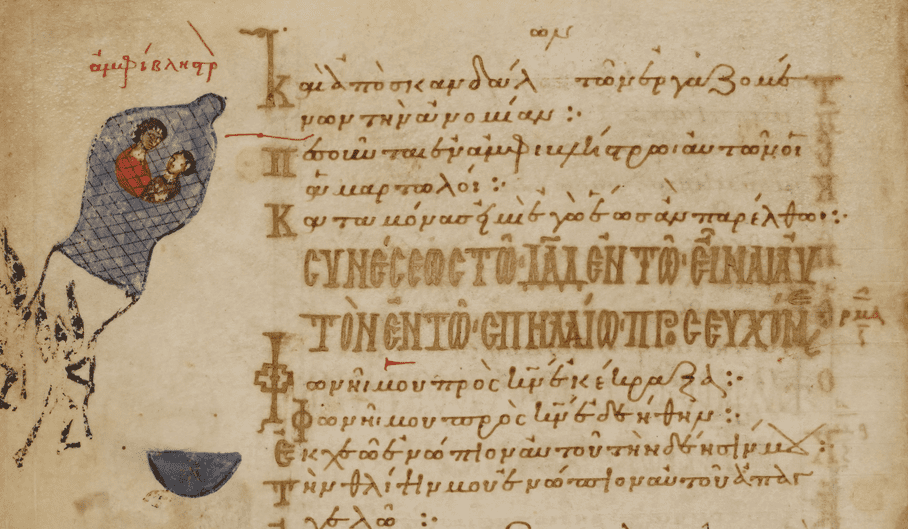 ἀμφίβληστρ
ων
Καὶ ἀπὸ σκανδάλ τῶν ἐργαζομέ
νων τὴν ἀνομίαν :
Πεσοῦνται ἐν ἀμφιβλήστρω αὐτοῦ οἱ
ἁμαρτωλοί :
Κατα μόνας εἰμὶ ἐγὼ ἕως ἂν παρέλθω :
ϹΥΝΈϹΕΩϹ ΤΩ͂ ΔΑ̅Δ ἘΝ ΤΩ͂ ΕἾΝΑΙ ΑΥ
ΤῸΝ ἘΝ ΤΩ͂ ϹΠΗΛΑΊΩ ΠΡΟϹΕΥΧΌΜ
ρμα
Φωνῆ μου πρὸς κ̅ν ἐκέκραξα :
Φωνῆ μου πρὸς κ̅ν ἐδεήθην :
Ἐκχεῶ ἐνώπιον αὐτοῦ τὴν δέησίν μου :
Τὴν θλίψιν μου ἐνώπιον αὐτοῦ ἀπαγ
γελῶ :